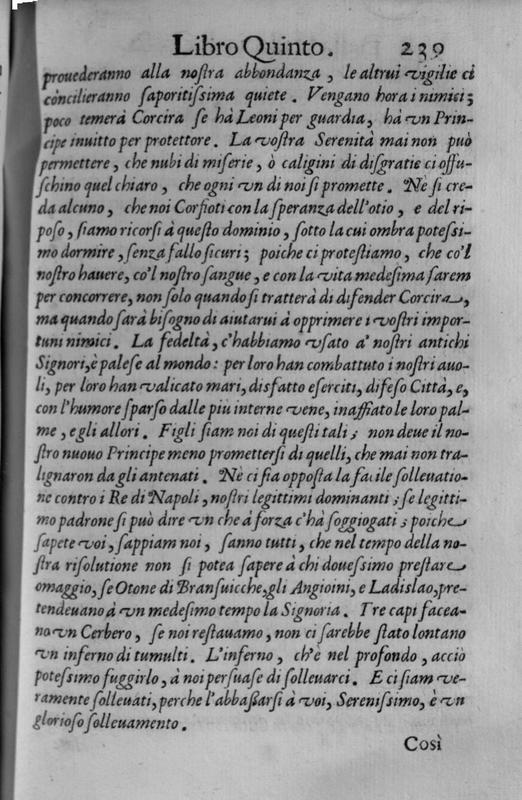 Libro Quinto. 239
prouederanno alla nostra abbondanza, le altrui vigilie ci
concilieranno saporitissima quiete. Vengano hora i nimici;
poco temerà Corcira se hà Leoni per guardia, hà vn Prin-
cipe inuitto per protettore. La vostra Serenità mai non può
permettere, che nubi di miserie, ò caligini di disgratie ci offu-
schino quel chiaro, che ogni vn di noi si promette. Nè si cre-
da alcuno, che noi Corfioti con la speranza dell'otio, e del ri-
poso, siamo ricorsi à questo dominio, sotto la cui ombra potessi-
mo dormire, senza fallo sicuri; poiche ci protestiamo, che co'l
nostro hauere, co'l nostro sangue, e con la vita medesima sarem
per concorrere, non solo quando si tratterà di difender Corcira,
ma quando sarà bisogno di aiutarui à opprimere i vostri impor-
tuni nimici. La fedeltà, c'habbiamo vsato a' nostri antichi
Signori, è palese al mondo: per loro han combattuto i nostri auo-
li, per loro han valicato mari, disfatto eserciti, difeso Città, e,
con l'humore sparso dalle più interne vene, inaffiato le loro pal-
me, e gli allori. Figli siam noi di questi tali; non deue il no-
stro nuouo Principe meno promettersi di quelli, che mai non tra-
lignaron da gli antenati. Nè ci sia opposta la facile solleuatio-
ne contro i Re di Napoli, nostri legittimi dominanti; se legitti-
mo padrone si può dire vn che à forza c'hà soggiogati; poiche
sapete voi, sappiam noi, sanno tutti, che nel tempo della no-
stra risolutione non si potea sapere à chi douessimo prestare
omaggio, se Otone di Bransuicche, gli Angioini, e Ladislao, pre-
tendeuano à vn medesimo tempo la Signoria. Tre capi facea-
no vn Cerbero, se noi restauamo, non ci sarebbe stato lontano
vn inferno di tumulti. L'inferno, ch'è nel profondo, acciò
potessimo fuggirlo, à noi persuase di solleuarci. E ci siam ve-
ramente solleuati, perche l'abbassarsi à voi, Serenissimo, è vn
glorioso solleuamento.
Così